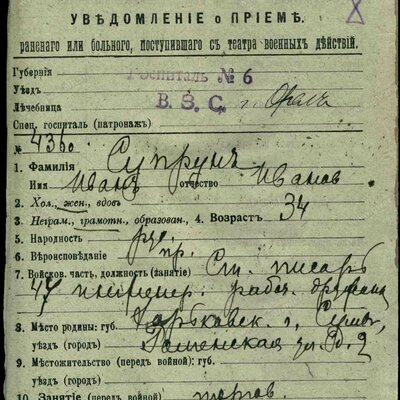 УВѢДОМЛЕНІЕ о ПРІЕМѢ.
раненаго или больного, поступившаго съ театра военныхъ дѣйствій.
Губернія
Госпиталь № 6
Уѣздъ
В. З. С. г. Орелъ
Лѣчебница
Спец. госпиталь (патронажъ)
№ 4360
1. Фамилія Супрунъ
Имя Иванъ отчество Иванов.
2. Хол., жен., вдовъ
3. Неграм., грамотн., образован., 4. Возрастъ 34
5. Народность рус.
6. Вѣроисповѣданіе пр.
7. Войсков. часть, должность (занятіе) Ст. писарь
47 инженер. рабоч. дружина
8. Мѣсто родины: губ. Харьковск. г. Сумы,
уѣздъ (город) Роменская ул. 2
9. Мѣстожительство (передъ войной): губ.
уѣздъ (город)
10. Занятіе (передъ войной) торгов.